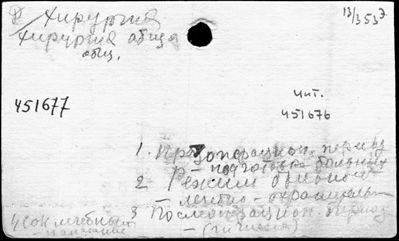 хирургия
13/353
хирургия общая
общ.
451677
чит.
451676
1. Предоперацион. период
– подготовка больных
2 Режим больного
– лечебно-охранитель
3 Послеоперацион. период
– (гигиена)